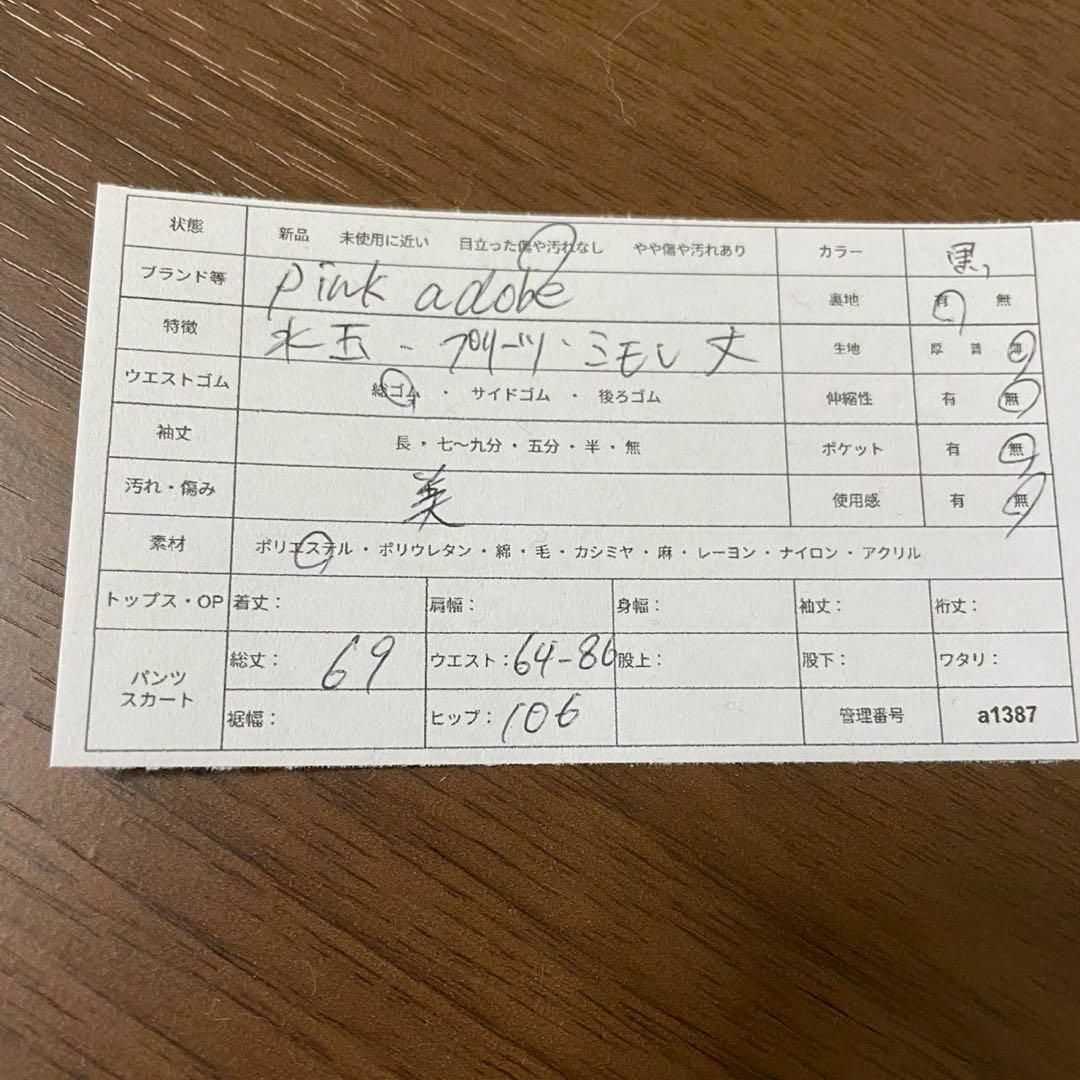 状態 新品 未使用に近い 目立った傷や汚れなし やや傷や汚れあり カラー 黒
ブランド等 pink adobe 裏地 有 無
特徴 水玉・プリーツ・ミモレ丈 生地 厚 普 薄
ウエストゴム 総ゴム ・ サイドゴム ・ 後ろゴム 伸縮性 有 無
袖丈 長・七〜九分・五分・半・無 ポケット 有 無
汚れ・傷み 美 使用感 有 無
素材 ポリエステル・ポリウレタン・綿・毛・カシミヤ・麻・レーヨン・ナイロン・アクリル
トップス・OP 着丈: 肩幅: 身幅: 袖丈: 裄丈:
パンツ スカート 総丈: 69 ウエスト: 64-86 股上: 股下: ワタリ:
裾幅: ヒップ: 106 管理番号 a1387